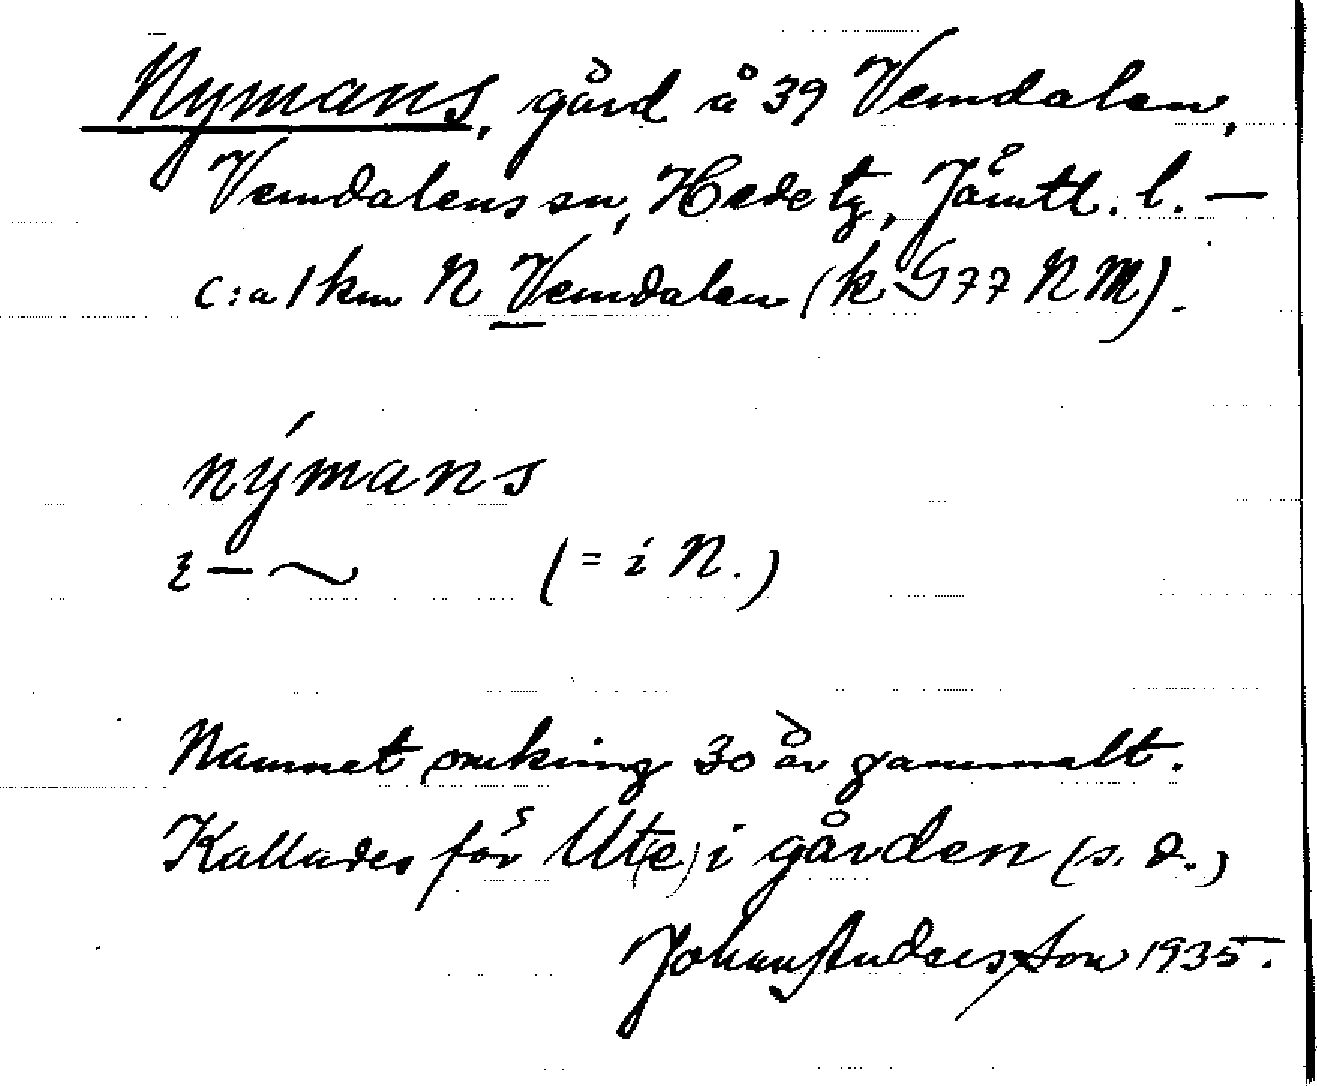 Nymans, gård å 39 Vemdalen,
Vemdalens sn, Hede tg, Jämtl. l. —
c:a 1 km N Vemdalen (k G77 NM).
nýmans
(= i N.)
Namnet omkring 30 år gammalt.
Kallades förs Ut(e) i gården (s. d.)
Johan Andersson 1935.